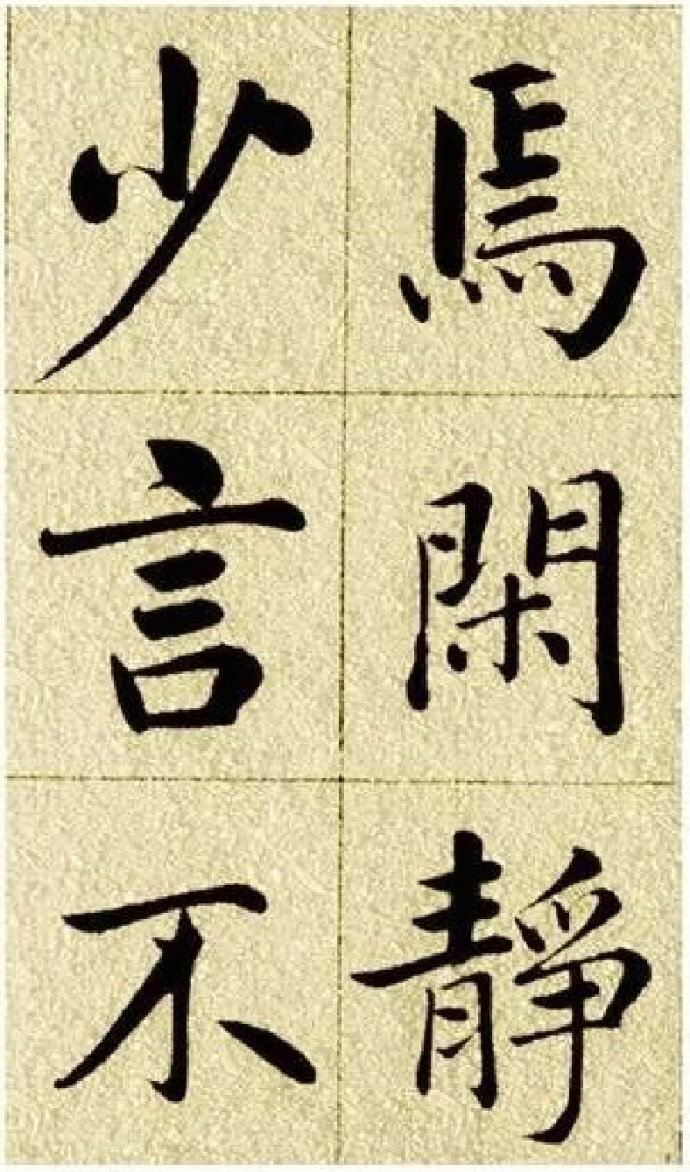 焉閑静
少言不